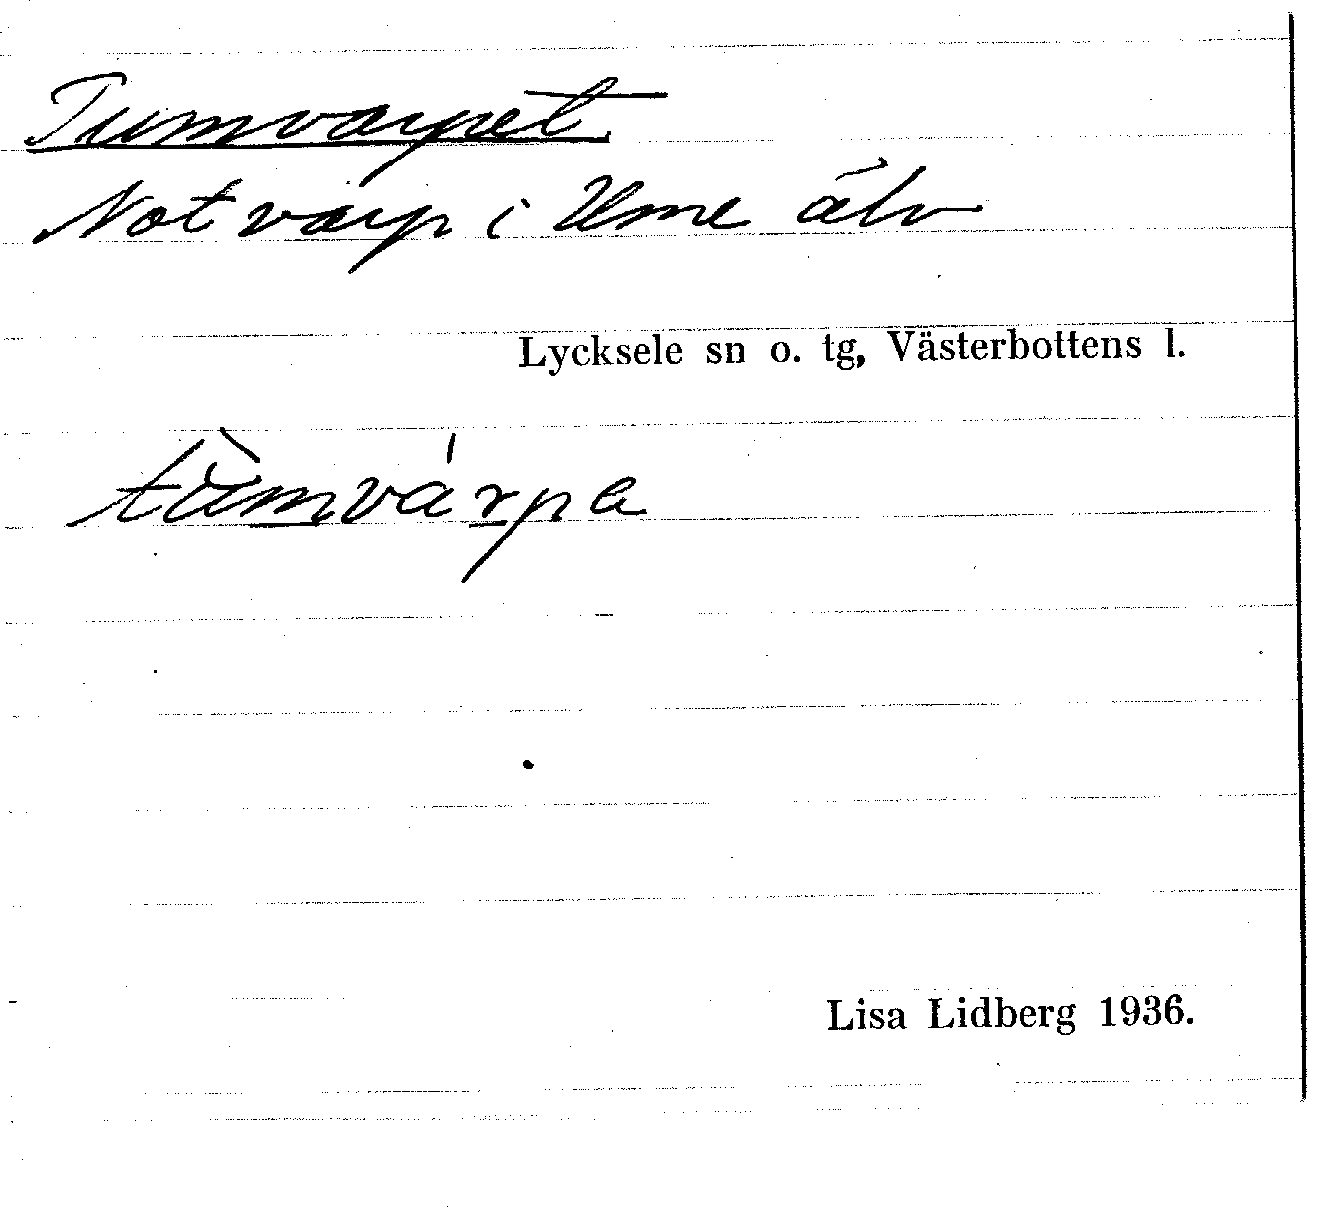 Tumvarpet
Notvarp i Ume älv
Lycksele sn o. tg, Västerbottens l.
tùmvárpa
Lisa Lidberg 1936.